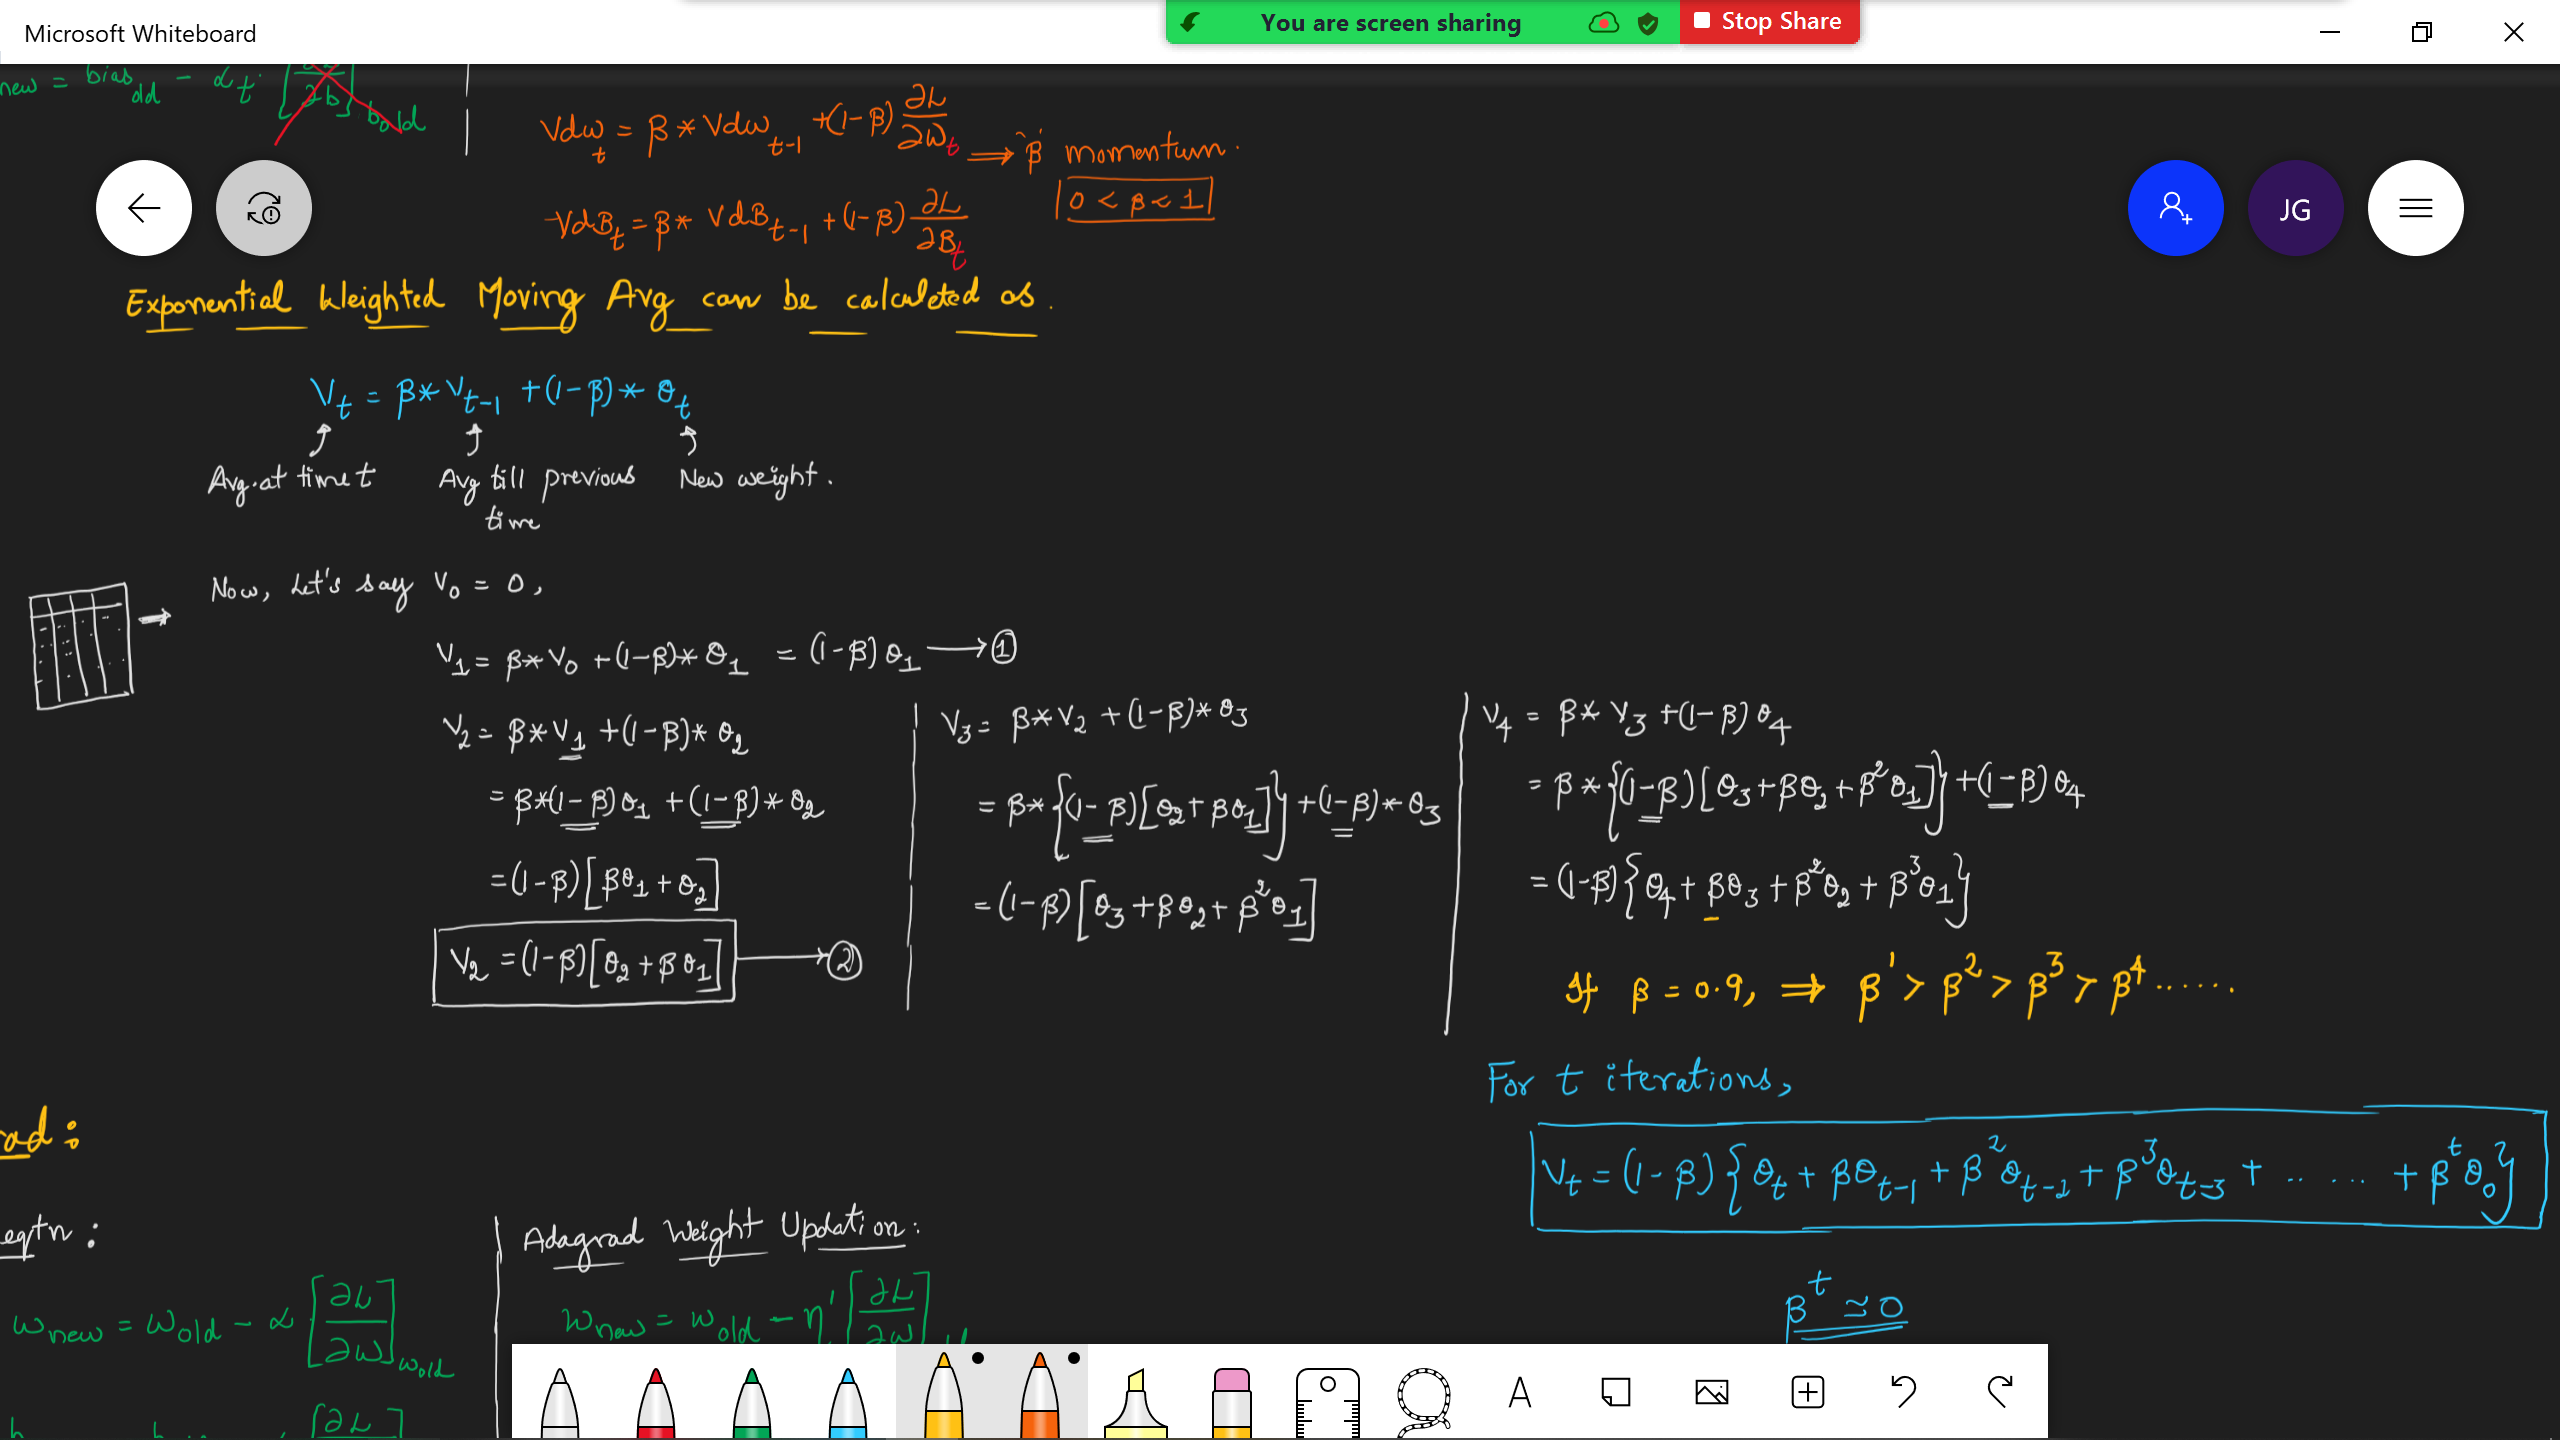 Microsoft Whiteboard
You are screen sharing
Stop Share
new = bias_old - α_t · [∂L/∂b]_bold
Vdw_t = β * Vdw_t-1 + (1-β) ∂L/∂W_t ⟹ β momentum.
0 < β < 1
VdB_t = β * VdB_t-1 + (1-β) ∂L/∂B_t
JG
Exponential Weighted Moving Avg can be calculated as.
V_t = β * V_t-1 + (1-β) * θ_t
Avg. at time t
Avg till previous time
New weight.
Now, Let's say V_0 = 0,
V_1 = β * V_0 + (1-β) * θ_1 = (1-β) θ_1 → ①
V_2 = β * V_1 + (1-β) * θ_2
= β * (1-β) θ_1 + (1-β) * θ_2
= (1-β) [βθ_1 + θ_2]
V_2 = (1-β) [θ_2 + β θ_1] → ②
V_3 = β * V_2 + (1-β) * θ_3
= β * {(1-β) [θ_2 + βθ_1]} + (1-β) * θ_3
= (1-β) [θ_3 + βθ_2 + β²θ_1]
V_4 = β * V_3 + (1-β) θ_4
= β * {(1-β) [θ_3 + βθ_2 + β²θ_1]} + (1-β) θ_4
= (1-β) {θ_4 + βθ_3 + β²θ_2 + β³θ_1}
If β = 0.9, ⟹ β' > β² > β³ > β⁴ ......
For t iterations,
V_t = (1-β) {θ_t + βθ_t-1 + β²θ_t-2 + β³θ_t-3 + ..... + β^t θ_0}
β^t ≃ 0
rad:
eqtn:
w_new = w_old - α [∂L/∂w]_wold
Adagrad Weight Updation:
w_new = w_old - η' [∂L/∂w]
[∂L
A